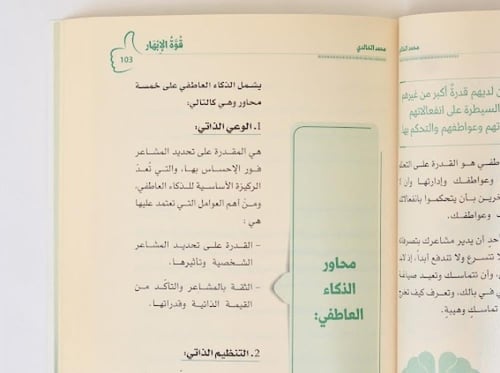 قُوَّةُ الإِبْهَار
103
محمد الخالدي
يشمل الذكاء العاطفي على خمسة
محاور وهي كالتالي:
1. الوعي الذاتي:
هي المقدرة على تحديد المشاعر
فور الإحساس بها، والتي تُعدّ
الركيزة الأساسية للذكاء العاطفي،
ومن أهم العوامل التي تعتمد عليها
هي:
- القدرة على تحديد المشاعر
الشخصية وتأثيرها.
- الثقة بالمشاعر والتأكّد من
القيمة الذاتية وقدراتها.
2. التنظيم الذاتي:
محاور
الذكاء
العاطفي:
محمد
لديهم قدرةٌ أكبر من غيرهم
السيطرة على انفعالاتهم
وعواطفهم والتحكم بها
هو القدرة على
وعواطفك وإدارتها وأن
بأن يتحكموا
وعواطفك.
أن يدير مشاعرك
تتسرع ولا تندفع أبداً،
وأن تتماسك وتعيد
في بالك، وتعرف كيف
تماسكٍ وهيبةٍ.